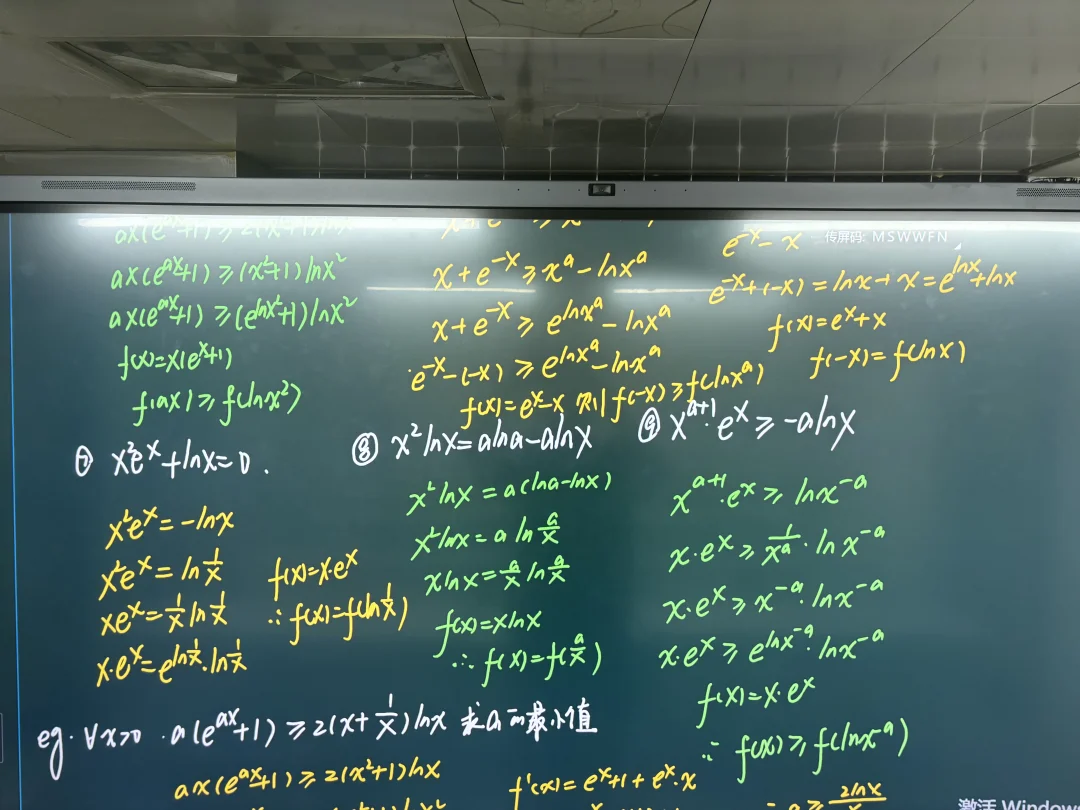 ax(e^{ax}+1) ≥ 2(x²+1)lnx
ax(e^{ax}+1) ≥ (x²+1)lnx²
ax(e^{ax}+1) ≥ (e^{lnx²}+1)lnx²
f(x)=x(e^x+1)
f(ax) ≥ f(lnx²)
x+e^{-x} ≥ x^a-lnx^a
x+e^{-x} ≥ e^{lnx^a}-lnx^a
e^{-x}-(-x) ≥ e^{lnx^a}-lnx^a
f(x)=e^x-x 则 f(-x) ≥ f(lnx^a)
e^{-x}-x
传屏码: MSWWFN
e^{-x}+(-x)=lnx+x=e^{lnx}+lnx
f(x)=e^x+x
f(-x)=f(lnx)
⑦ x²e^x+lnx=0.
x²e^x=-lnx
x²e^x=ln\frac{1}{x}
xe^x=\frac{1}{x}ln\frac{1}{x}
x·e^x=e^{ln\frac{1}{x}}·ln\frac{1}{x}
f(x)=x·e^x
∴ f(x)=f(ln\frac{1}{x})
⑧ x²lnx=alna-alnx
x²lnx=a(lna-lnx)
x²lnx=a ln\frac{a}{x}
xlnx=\frac{a}{x}ln\frac{a}{x}
f(x)=xlnx
∴ f(x)=f(\frac{a}{x})
⑨ x^{a+1}·e^x ≥ -alnx
x^{a+1}·e^x ≥ lnx^{-a}
x·e^x ≥ \frac{1}{x^a}·lnx^{-a}
x·e^x ≥ x^{-a}·lnx^{-a}
x·e^x ≥ e^{lnx^{-a}}·lnx^{-a}
f(x)=x·e^x
∴ f(x) ≥ f(lnx^{-a})
eg. ∀x>0 . a(e^{ax}+1) ≥ 2(x+\frac{1}{x})lnx 求a的最小值
ax(e^{ax}+1) ≥ 2(x²+1)lnx
f'(x)=e^x+1+e^x·x
激活 Windows